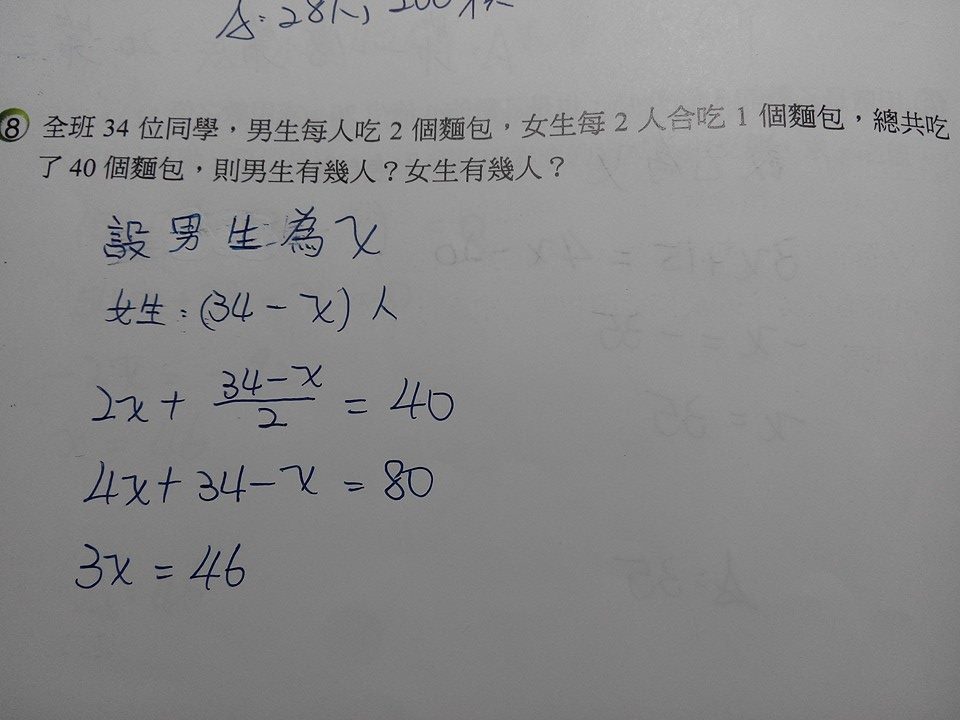 A：28人，200
8 全班 34 位同學，男生每人吃 2 個麵包，女生每 2 人合吃 1 個麵包，總共吃
了 40 個麵包，則男生有幾人？女生有幾人？
設男生為 x
女生：(34－x) 人
2x + (34－x)/2 = 40
4x + 34－x = 80
3x = 46